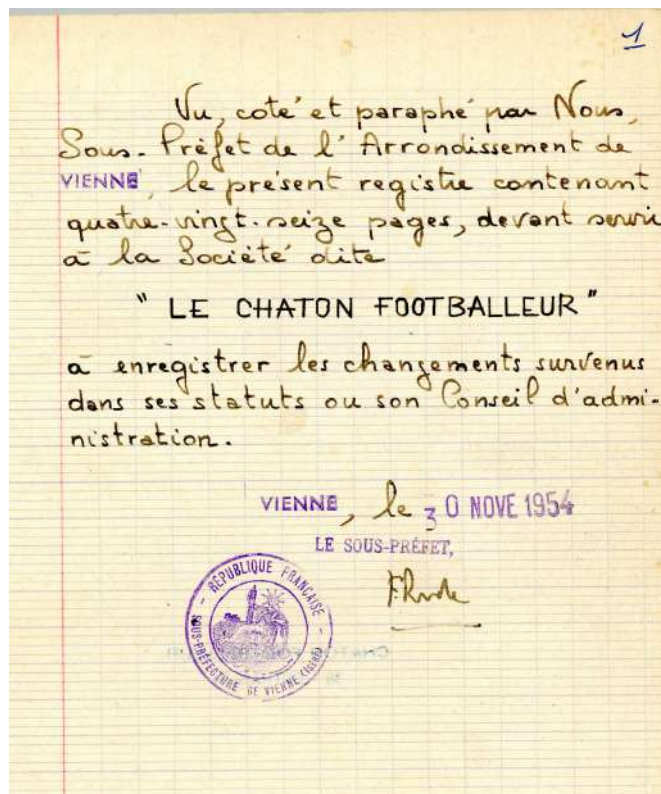 1
Vu, coté et paraphé par Nous,
Sous-Préfet de l'Arrondissement de
VIENNE, le présent registre contenant
quatre-vingt-seize pages, devant servir
à la Société dite
"LE CHATON FOOTBALLEUR"
à enregistrer les changements survenus
dans ses statuts ou son Conseil d'admi-
nistration.
VIENNE, le 30 NOVE 1954
LE SOUS-PRÉFET,
RÉPUBLIQUE FRANÇAISE
SOUS-PRÉFECTURE DE VIENNE (ISÈRE)